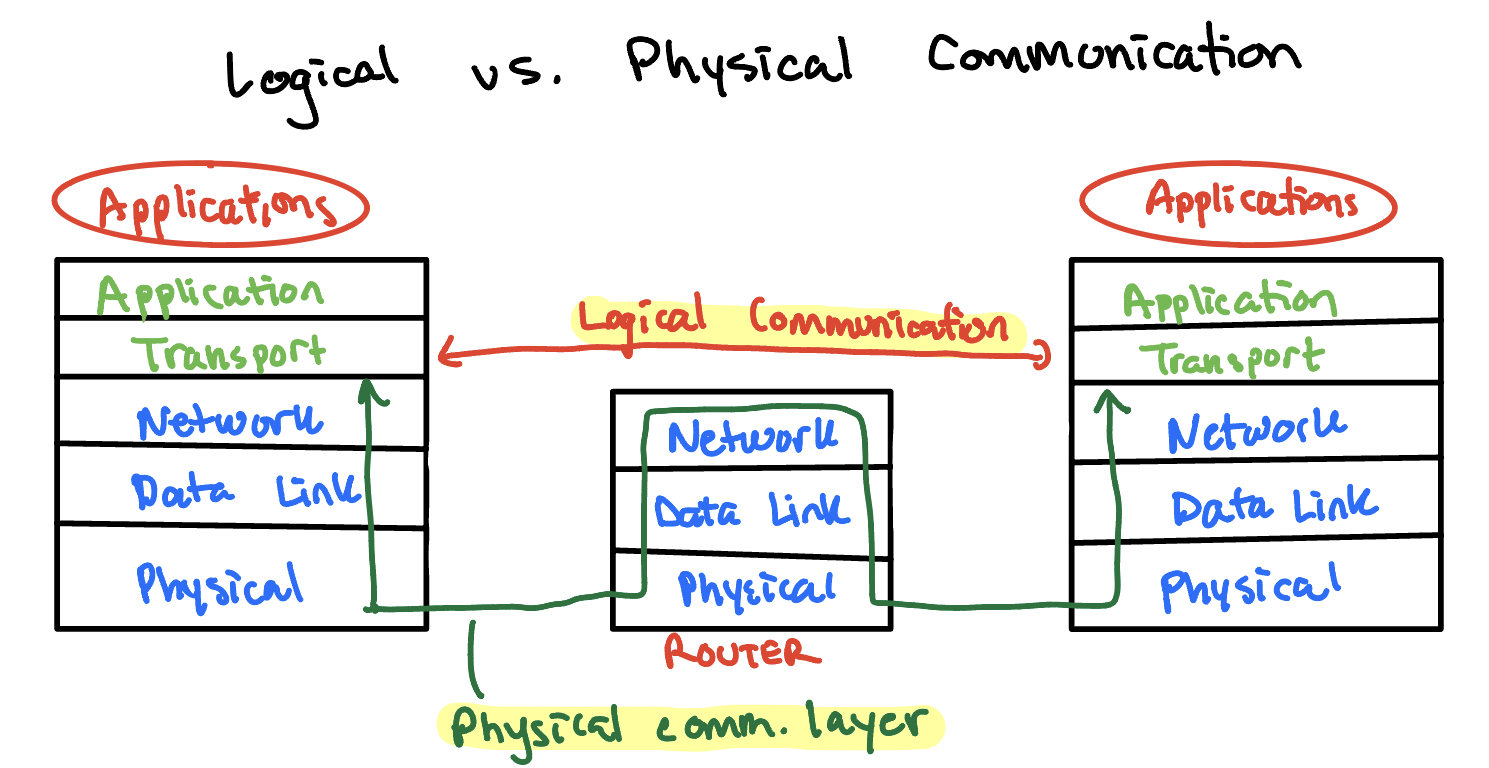 Logical vs. Physical Communication
Applications
Applications
Application
Transport
Network
Data Link
Physical
Logical Communication
Network
Data Link
Physical
ROUTER
Application
Transport
Network
Data Link
Physical
Physical comm. layer